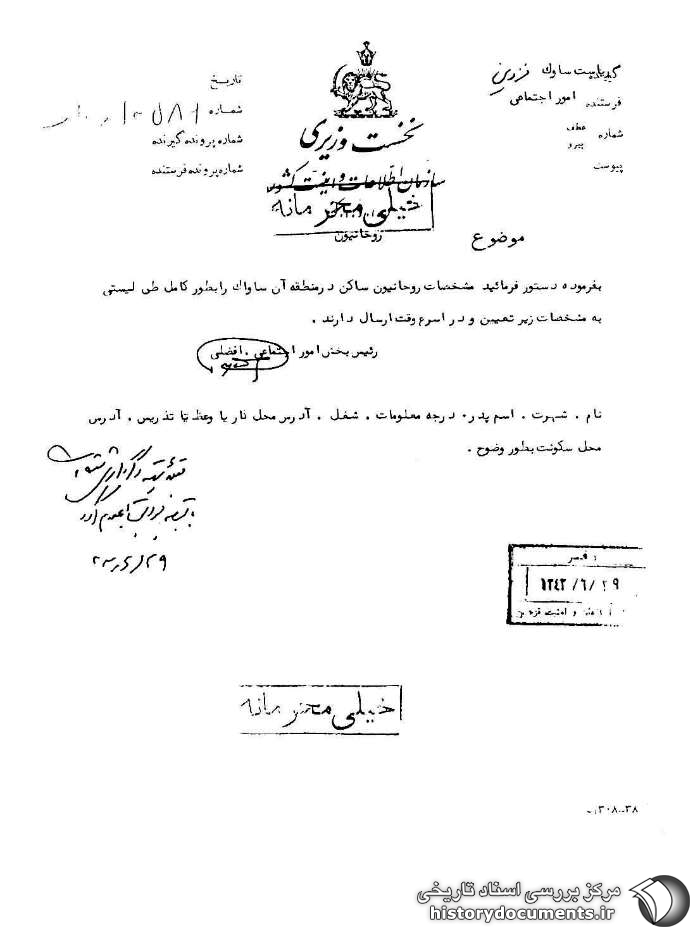 گیرنده ریاست ساواك قزوین
فرستنده امور اجتماعی
شماره عطف
پیرو
پیوست
نخست وزیری
سازمان اطلاعات و امنیت کشور
خیلی محرمانه
تاریخ
شماره
شماره پرونده گیرنده
شماره پرونده فرستنده
موضوع روحانیون
بفرموده دستور فرمائید مشخصات روحانیون ساکن درمنطقه آن ساواك رابطور کامل طی لیستی
به مشخصات زیر تعیین و در اسرع وقت ارسال دارند .
رئیس بخش امور اجتماعی . افضلی
نام . شهرت . اسم پدر . درجه معلومات . شغل . آدرس محل نار یا وعظ یا تدریس . آدرس
محل سکونت بطور وضوح .
۱۳۴۳/۶/۲۹
و امنیت قزوین
خیلی محرمانه
۳۰۸-۳۸
مرکز بررسی اسناد تاریخی
historydocuments.ir